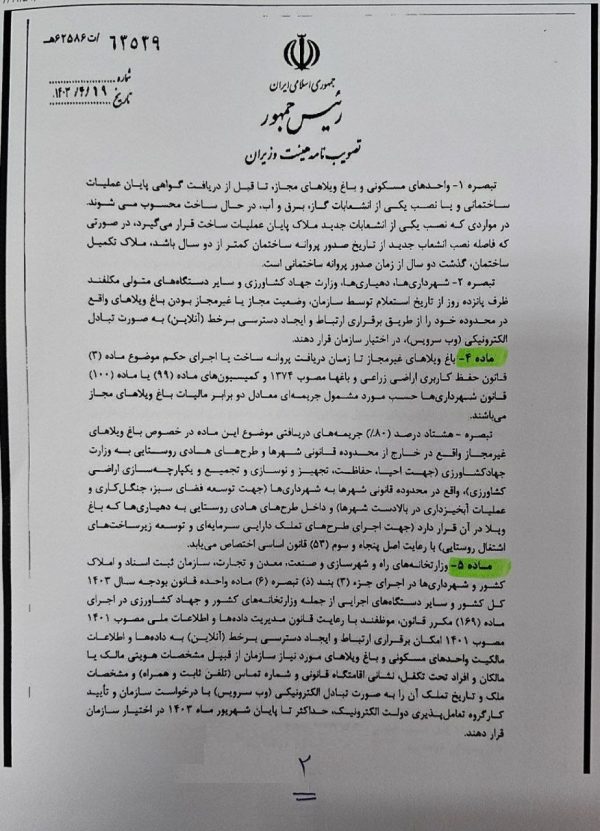 ۶۳۵۳۹ /ت۶۲۵۸۶هـ
شماره
تاریخ ۱۴۰۳/۴/۱۹
جمهوری اسلامی ایران
رئیس جمهور
تصویب نامه هیئت وزیران
تبصره ۱- واحدهای مسکونی و باغ ویلاهای مجاز، تا قبل از دریافت گواهی پایان عملیات
ساختمانی و یا نصب یکی از انشعابات گاز، برق و آب، در حال ساخت محسوب می شوند.
در مواردی که نصب یکی از انشعابات جدید ملاک پایان عملیات ساخت قرار می‌گیرد، در صورتی
که فاصله نصب انشعاب جدید از تاریخ صدور پروانه ساختمان کمتر از دو سال باشد، ملاک تکمیل
ساختمان، گذشت دو سال از زمان صدور پروانه ساختمانی است.
تبصره ۲- شهرداری‌ها، دهیاری‌ها، وزارت جهاد کشاورزی و سایر دستگاه‌های متولی مکلفند
ظرف پانزده روز از تاریخ استعلام توسط سازمان، وضعیت مجاز یا غیرمجاز بودن باغ ویلاهای واقع
در محدوده خود را از طریق برقراری ارتباط و ایجاد دسترسی برخط (آنلاین) به صورت تبادل
الکترونیکی (وب سرویس)، در اختیار سازمان قرار دهند.
ماده ۴- باغ ویلاهای غیرمجاز تا زمان دریافت پروانه ساخت یا اجرای حکم موضوع ماده (۳)
قانون حفظ کاربری اراضی زراعی و باغها مصوب ۱۳۷۴ و کمیسیون‌های ماده (۹۹) یا ماده (۱۰۰)
قانون شهرداری‌ها حسب مورد مشمول جریمه‌ای معادل دو برابر مالیات باغ ویلاهای مجاز
می‌باشند.
تبصره - هشتاد درصد (۸۰٪) جریمه‌های دریافتی موضوع این ماده در خصوص باغ ویلاهای
غیرمجاز واقع در خارج از محدوده قانونی شهرها و طرح‌های هادی روستایی به وزارت
جهادکشاورزی (جهت احیا، حفاظت، تجهیز و نوسازی و تجمیع و یکپارچه‌سازی اراضی
کشاورزی)، واقع در محدوده قانونی شهرها به شهرداری‌ها (جهت توسعه فضای سبز، جنگل‌کاری و
عملیات آبخیزداری در بالادست شهرها) و داخل طرح‌های هادی روستایی به دهیاری‌ها که باغ
ویلا در آن قرار دارد (جهت اجرای طرح‌های تملک دارایی سرمایه‌ای و توسعه زیرساخت‌های
اشتغال روستایی) با رعایت اصل پنجاه و سوم (۵۳) قانون اساسی اختصاص می‌یابد.
ماده ۵- وزارتخانه‌های راه و شهرسازی و صنعت، معدن و تجارت، سازمان ثبت اسناد و املاک
کشور و شهرداری‌ها در اجرای جزء (۳) بند (ذ) تبصره (۶) ماده واحده قانون بودجه سال ۱۴۰۳
کل کشور و سایر دستگاه‌های اجرایی از جمله وزارتخانه‌های کشور و جهاد کشاورزی در اجرای
ماده (۱۶۹) مکرر قانون، موظفند با رعایت قانون مدیریت داده‌ها و اطلاعات ملی مصوب ۱۴۰۱
مصوب ۱۴۰۱ امکان برقراری ارتباط و ایجاد دسترسی برخط (آنلاین) به داده‌ها و اطلاعات
مالکیت واحدهای مسکونی و باغ ویلاهای مورد نیاز سازمان از قبیل مشخصات هویتی مالک یا
مالکان و افراد تحت تکفل، نشانی اقامتگاه قانونی و شماره تماس (تلفن ثابت و همراه) و مشخصات
ملک و تاریخ تملک آن را به صورت تبادل الکترونیکی (وب سرویس) با درخواست سازمان و تأیید
کارگروه تعامل‌پذیری دولت الکترونیک، حداکثر تا پایان شهریور ماه ۱۴۰۳ در اختیار سازمان
قرار دهند.
۲